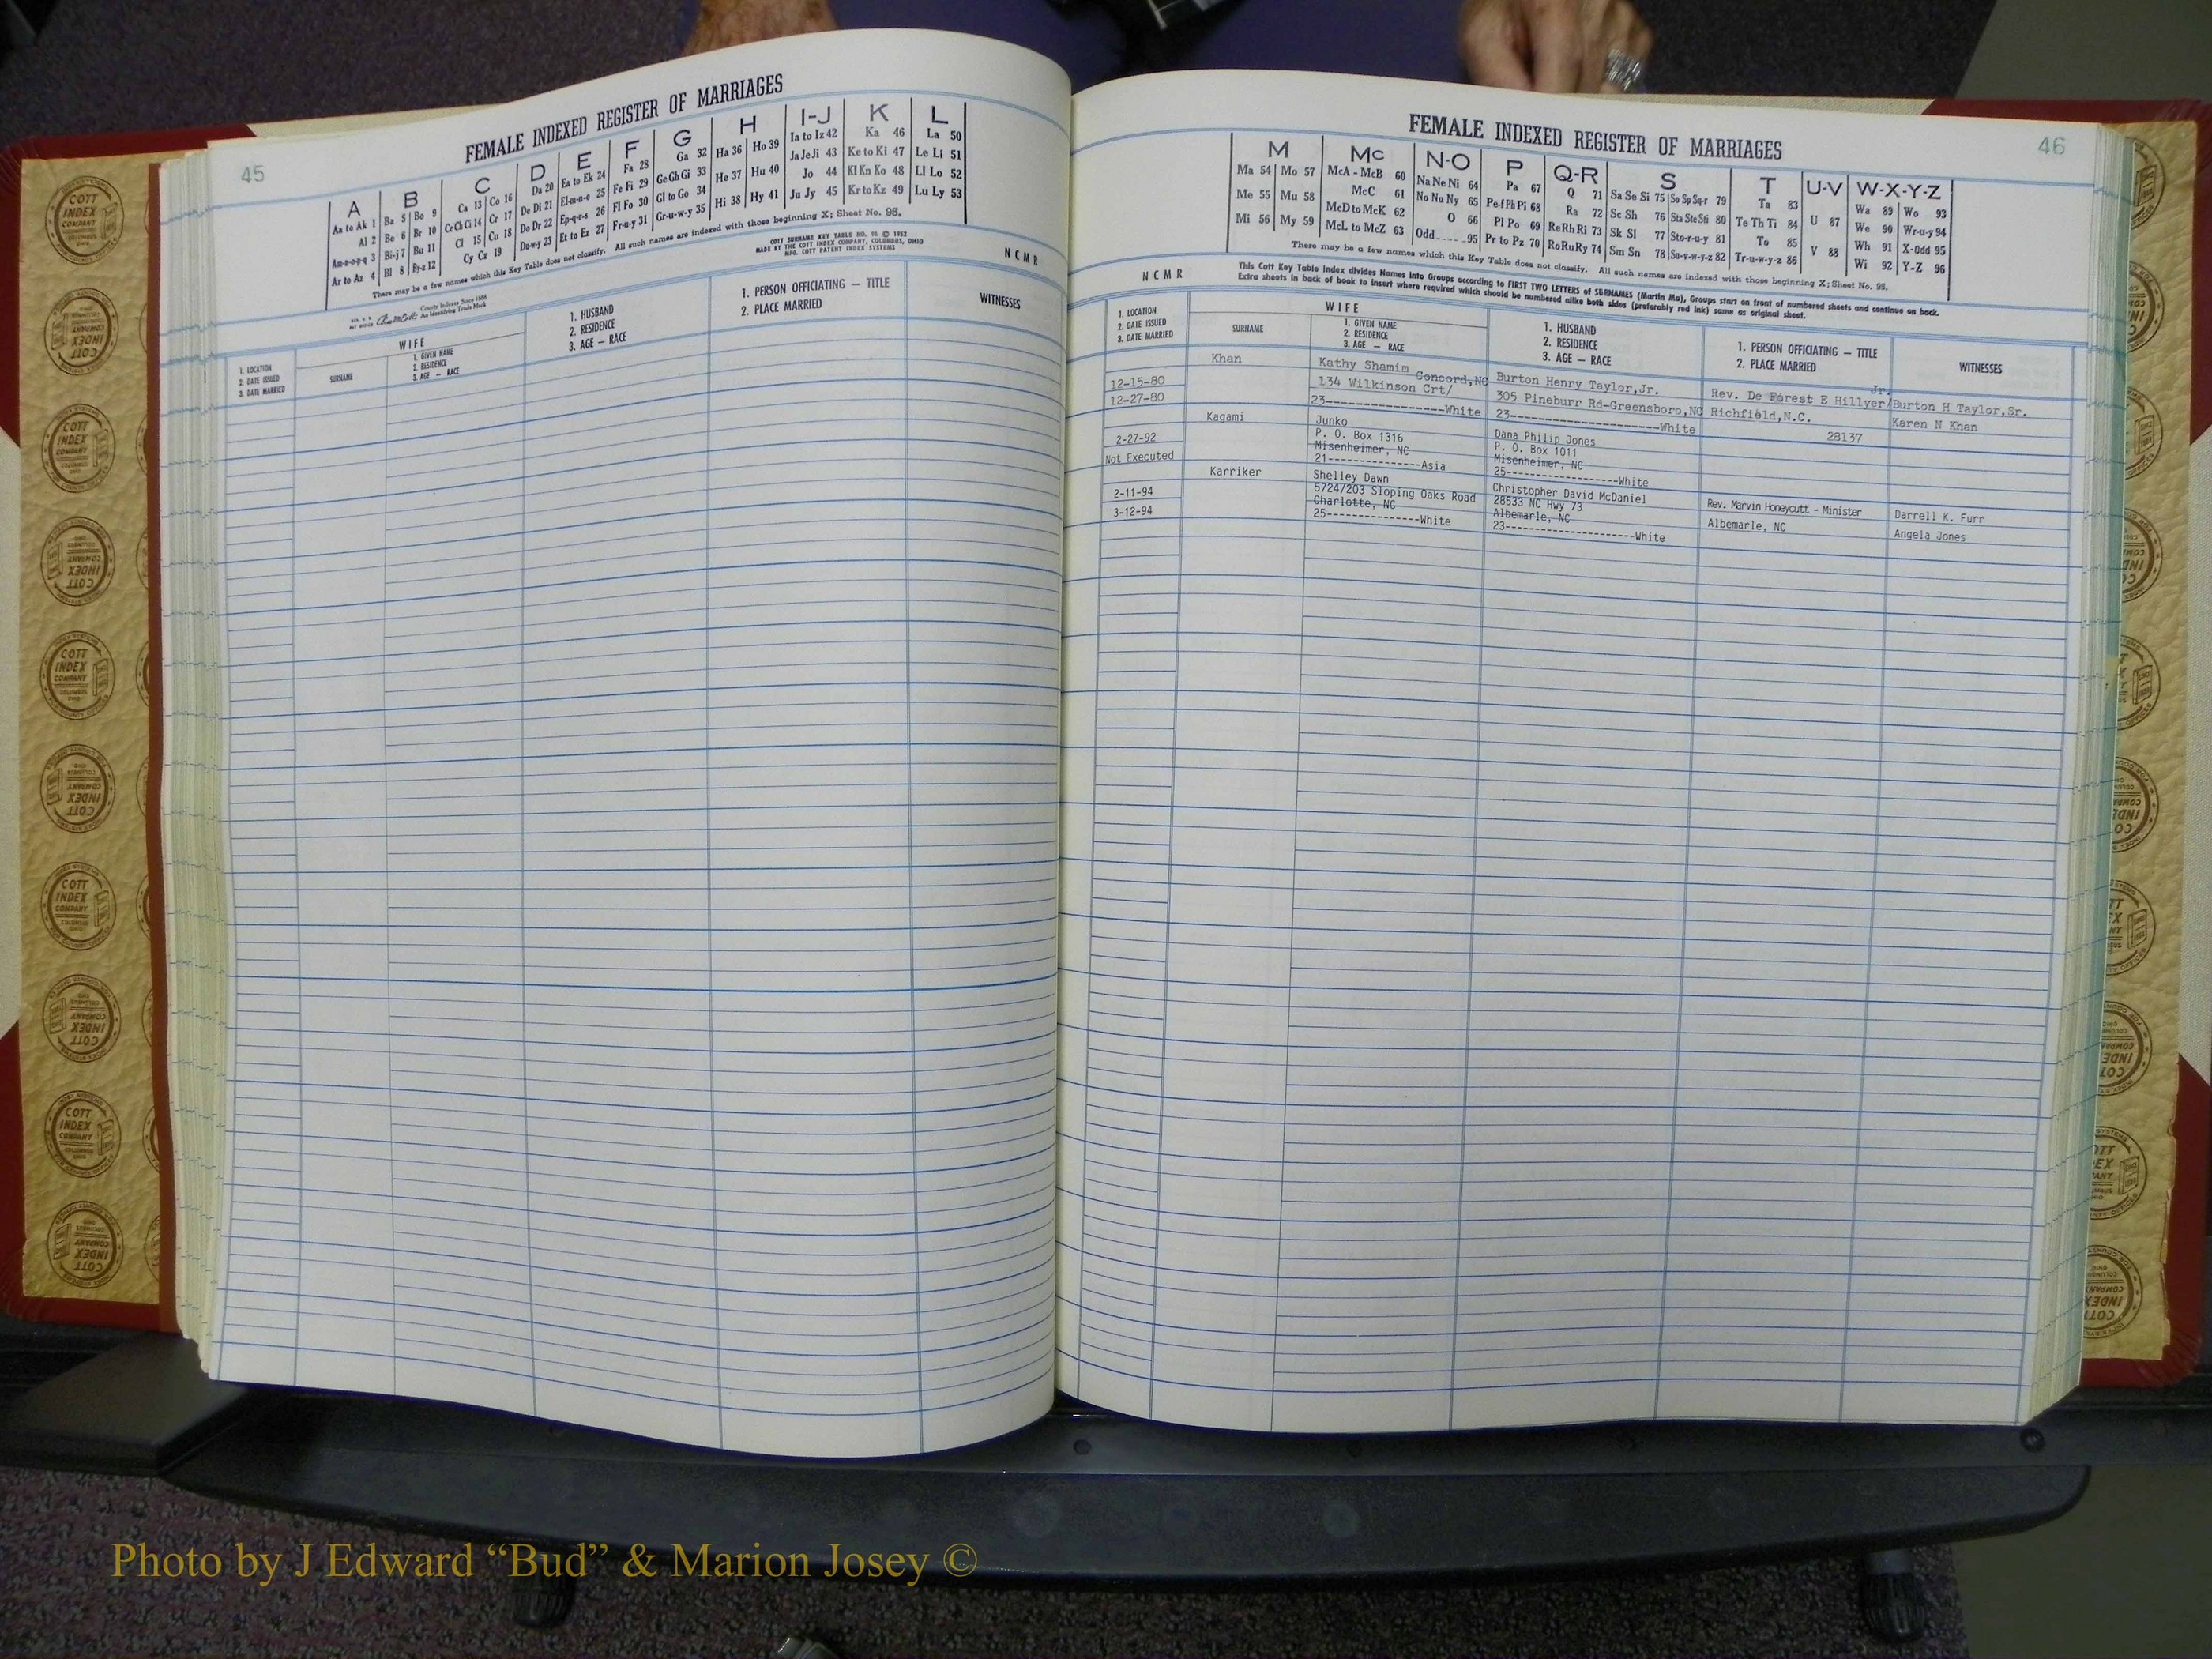 45
FEMALE INDEXED REGISTER OF MARRIAGES
A B C D E F G H I-J K L
Aa to Ak 1 Ba 5 Bo 9 Ca 13 Co 16 Da 20 Ea to Ek 24 Fa 28 Ga 32 Ha 36 Ho 39 Ia to Iz 42 Ka 46 La 50
Al 2 Be 6 Br 10 Ce Ch Ci 14 Cr 17 De Di 21 El-m-n-o 25 Fe Fi 29 Ge Gh Gi 33 He 37 Hu 40 Ja Je Ji 43 Ke to Ki 47 Le Li 51
Am-n-o-p-q 3 Bi-j 7 Bu 11 Cl 15 Cu 18 Do Dr 22 Ep-q-r-s 26 Fl Fo 30 Gl to Go 34 Hi 38 Hy 41 Jo 44 Kl Kn Ko 48 Ll Lo 52
Ar to Az 4 Bl 8 By-z 12 Cy Cz 19 Du-w-y 23 Et to Ez 27 Fr-u-y 31 Gr-u-w-y 35 Ju Jy 45 Kr to Kz 49 Lu Ly 53
There may be a few names which this Key Table does not classify. All such names are indexed with those beginning X; Sheet No. 95.
County Indexes Since 1888
An Identifying Trade Mark
COTT SURNAME KEY TABLE NO. 96 © 1952
MADE BY THE COTT INDEX COMPANY, COLUMBUS, OHIO
MFG. COTT PATENT INDEX SYSTEMS
NCMR
1. LOCATION
2. DATE ISSUED
3. DATE MARRIED
WIFE
SURNAME
1. GIVEN NAME
2. RESIDENCE
3. AGE — RACE
1. HUSBAND
2. RESIDENCE
3. AGE — RACE
1. PERSON OFFICIATING — TITLE
2. PLACE MARRIED
WITNESSES
46
FEMALE INDEXED REGISTER OF MARRIAGES
M Mc N-O P Q-R S T U-V W-X-Y-Z
Ma 54 Mo 57 McA - McB 60 Na Ne Ni 64 Pa 67 Q 71 Sa Se Si 75 So Sp Sq-r 79 Ta 83 U 87 Wa 89 Wo 93
Me 55 Mu 58 McC 61 No Nu Ny 65 Pe-f Ph Pi 68 Ra 72 Sc Sh 76 Sta Ste Sti 80 Te Th Ti 84 V 88 We 90 Wr-u-y 94
Mi 56 My 59 McD to McK 62 O 66 Pl Po 69 Re Rh Ri 73 Sk Sl 77 Sto-r-u-y 81 To 85 Wh 91 X-Odd 95
McL to McZ 63 Odd 95 Pr to Pz 70 Ro Ru Ry 74 Sm Sn 78 Su-v-w-y-z 82 Tr-u-w-y-z 86 Wi 92 Y-Z 96
There may be a few names which this Key Table does not classify. All such names are indexed with those beginning X; Sheet No. 95.
This Cott Key Table Index divides Names into Groups according to FIRST TWO LETTERS of SURNAMES (Martin Ma), Groups start on front of numbered sheets and continue on back.
Extra sheets in back of book to insert where required which should be numbered alike both sides (preferably red ink) same as original sheet.
NCMR
1. LOCATION
2. DATE ISSUED
3. DATE MARRIED
WIFE
SURNAME
1. GIVEN NAME
2. RESIDENCE
3. AGE — RACE
1. HUSBAND
2. RESIDENCE
3. AGE — RACE
1. PERSON OFFICIATING — TITLE
2. PLACE MARRIED
WITNESSES
Khan
12-15-80
12-27-80
Kathy Shamim
134 Wilkinson Crt/ Concord,NC
23----------------White
Burton Henry Taylor,Jr.
305 Pineburr Rd-Greensboro,NC
23--------------------White
Rev. De Forest E Hillyer/Jr.
Richfield,N.C.
28137
Burton H Taylor,Sr.
Karen N Khan
Kagami
2-27-92
Not Executed
Junko
P. O. Box 1316
Misenheimer, NC
21---------------Asia
Dana Philip Jones
P. O. Box 1011
Misenheimer, NC
25------------------White
Karriker
2-11-94
3-12-94
Shelley Dawn
5724/203 Sloping Oaks Road
Charlotte, NC
25---------------White
Christopher David McDaniel
28533 NC Hwy 73
Albemarle, NC
23---------------------White
Rev. Marvin Honeycutt - Minister
Albemarle, NC
Darrell K. Furr
Angela Jones
COTT INDEX COMPANY
Photo by J Edward “Bud” & Marion Josey ©